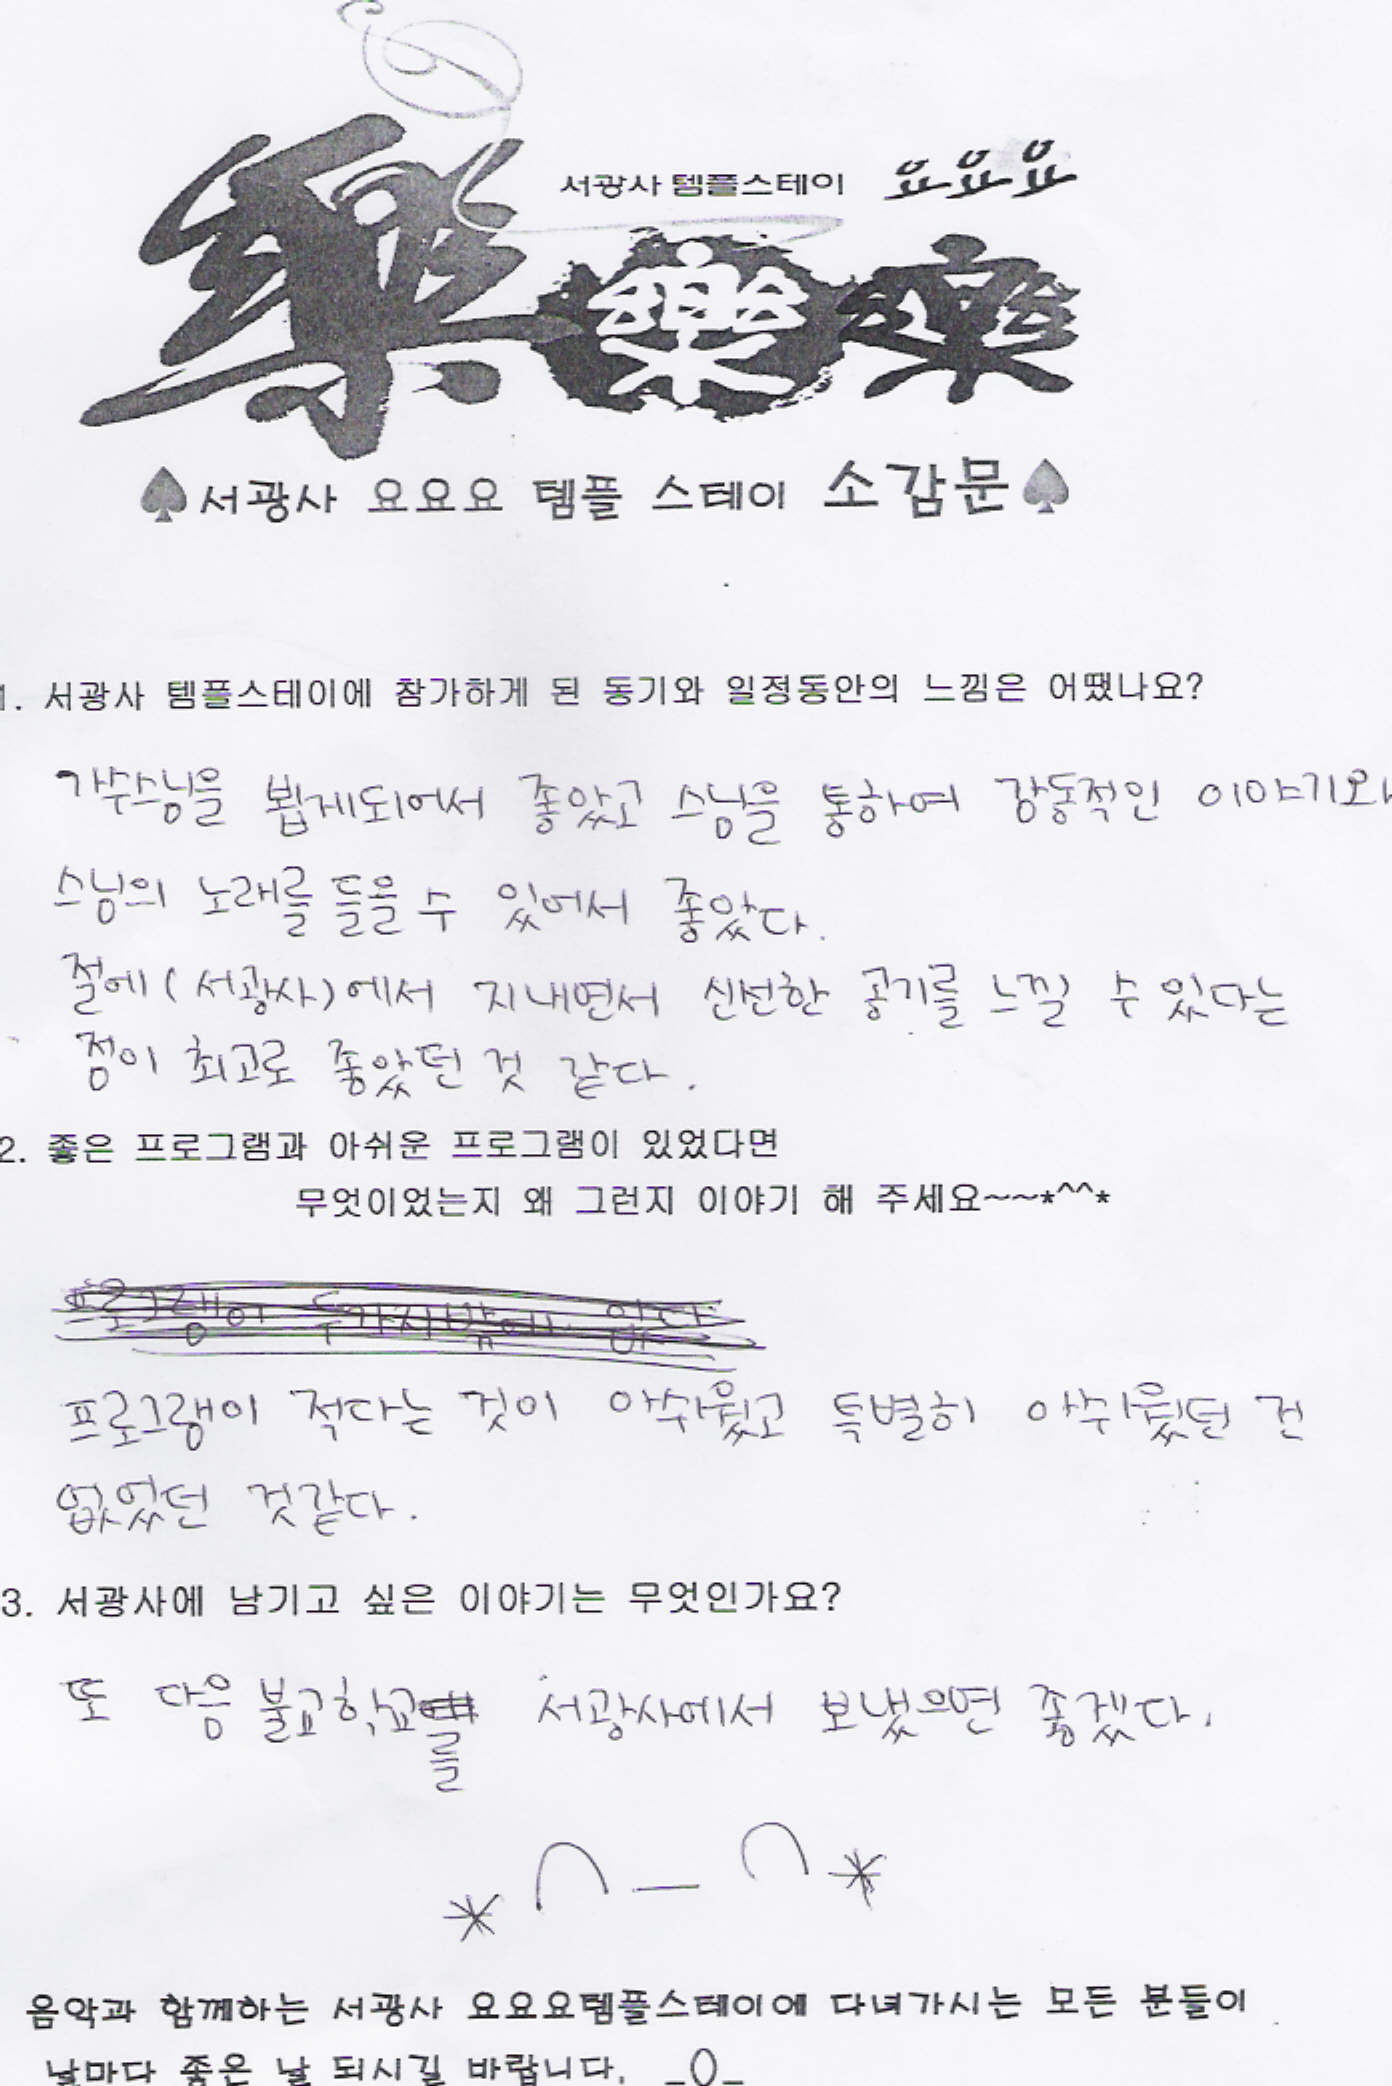 서광사 템플스테이 요요요
樂樂樂
♠서광사 요요요 템플 스테이 소감문♠
1. 서광사 템플스테이에 참가하게 된 동기와 일정동안의 느낌은 어땠나요?
가수스님을 뵙게되어서 좋았고 스님을 통하여 감동적인 이야기와
스님의 노래를 들을 수 있어서 좋았다.
절에(서광사)에서 지내면서 신선한 공기를 느낄 수 있다는
점이 최고로 좋았던 것 같다.
2. 좋은 프로그램과 아쉬운 프로그램이 있었다면
무엇이었는지 왜 그런지 이야기 해 주세요~~*^^*
프로그램이 적다는 것이 아쉬웠고 특별히 아쉬웠던 건
없었던 것같다.
3. 서광사에 남기고 싶은 이야기는 무엇인가요?
또 다음 불교학교를 서광사에서 보냈으면 좋겠다.
*^_^*
음악과 함께하는 서광사 요요요템플스테이에 다녀가시는 모든 분들이
날마다 좋은 날 되시길 바랍니다. _()_